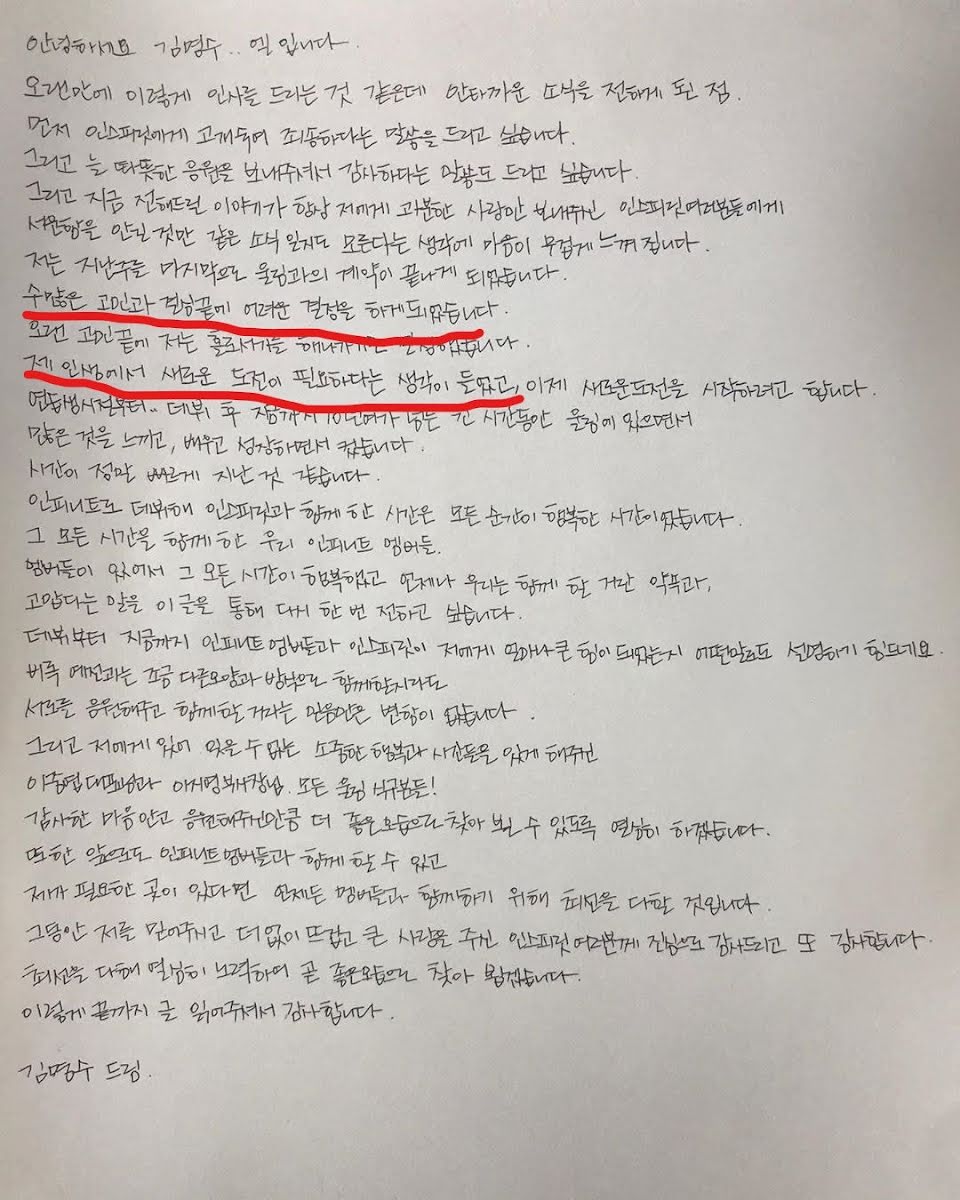 안녕하세요 김명수.. 엘입니다.
오랜만에 이렇게 인사를 드리는 것 같은데 안타까운 소식을 전하게 된 점.
먼저 인스피릿에게 고개숙여 죄송하다는 말씀을 드리고 싶습니다.
그리고 늘 따뜻한 응원을 보내주셔서 감사하다는 말씀도 드리고 싶습니다.
그리고 지금 전해드릴 이야기가 항상 저에게 과분한 사랑만 보내주신 인스피릿여러분들에게
서운함을 안길 것만 같은 소식 일지도 모른다는 생각에 마음이 무겁게 느껴집니다.
저는 지난주를 마지막으로 울림과의 계약이 끝나게 되었습니다.
수많은 고민과 결심끝에 어려운 결정을 하게되었습니다.
오랜 고민끝에 저는 홀로서기를 결정했습니다.
제 인생에서 새로운 도전이 필요하다는 생각이 들었고, 이제 새로운도전을 시작하려고 합니다.
연습생시절부터.. 데뷔 후 지금까지 10년여가 넘는 긴 시간동안 울림에 있으면서
많은 것을 느끼고, 배우고 성장하면서 컸습니다.
시간이 정말 빠르게 지난 것 같습니다.
인피니트로 데뷔해 인스피릿과 함께 한 시간은 모든 순간이 행복한 시간이었습니다.
그 모든 시간을 함께 한 우리 인피니트 멤버들.
멤버들이 있어서 그 모든 시간이 행복했고 언제나 우리는 함께 할 거란 약속과,
고맙다는 말을 이 글을 통해 다시 한 번 전하고 싶습니다.
데뷔부터 지금까지 인피니트멤버들과 인스피릿이 저에게 얼마나 큰 힘이 되었는지 어떤말로도 설명하기 힘드네요.
비록 예전과는 조금 다른모양과 방식으로 함께할지라도
서로를 응원해주고 함께할 거라는 믿음만은 변함이 없습니다.
그리고 저에게 있어 잊을 수 없는 소중한 행복과 시간들을 있게 해주신
이중엽대표님과 이지영부사장님. 모든 울림 식구분들!
감사한 마음안고 응원해주신만큼 더 좋은모습으로 찾아 뵐 수 있도록 열심히 하겠습니다.
또한 앞으로도 인피니트멤버들과 함께 할 수 있고
제가 필요한 곳이 있다면 언제든 멤버들과 함께하기 위해 최선을 다할 것입니다.
그동안 저를 믿어주시고 더없이 뜨겁고 큰 사랑을 주신 인스피릿여러분께 진심으로 감사드리고 또 감사합니다.
최선을 다해 열심히 노력하여 곧 좋은모습으로 찾아 뵙겠습니다.
이렇게 끝까지 글 읽어주셔서 감사합니다.
김명수 드림.